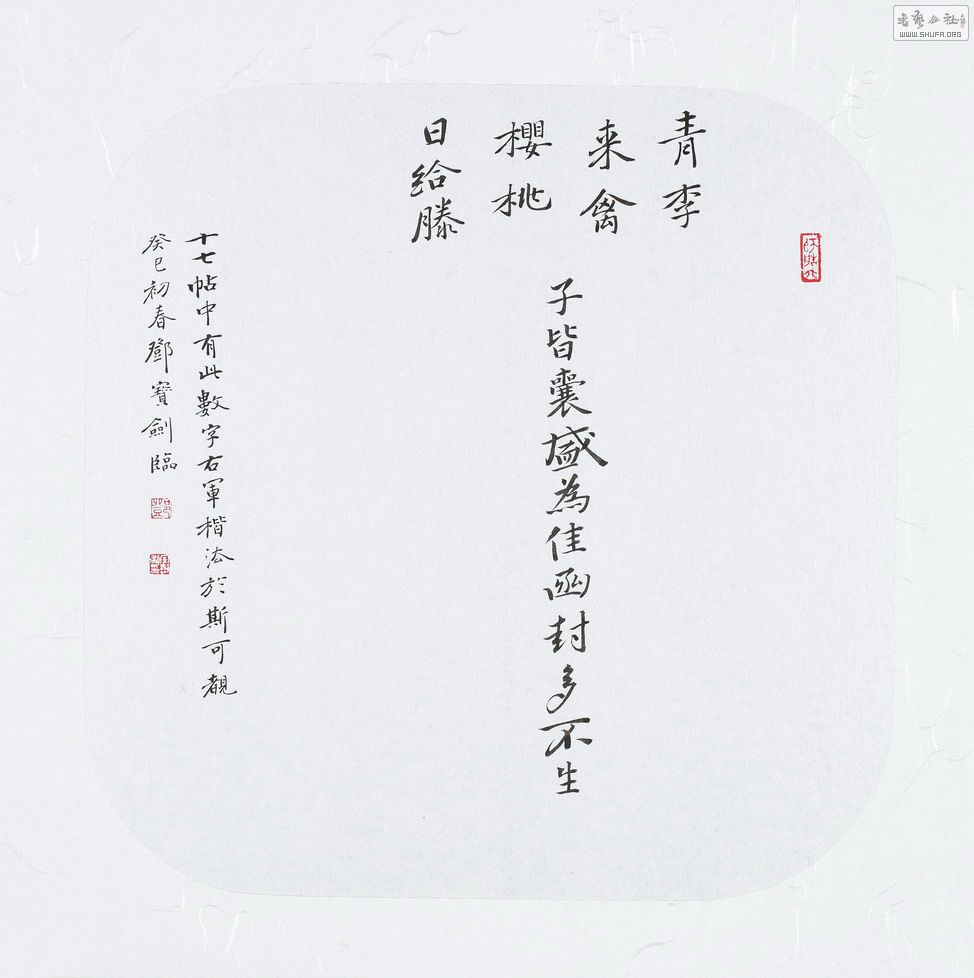 青李
来禽
櫻桃
日給滕
子皆囊盛為佳函封多不生
十七帖中有此數字右軍楷法於斯可覩
癸巳初春鄧寶劍臨
WWW.SHUFA.ORG